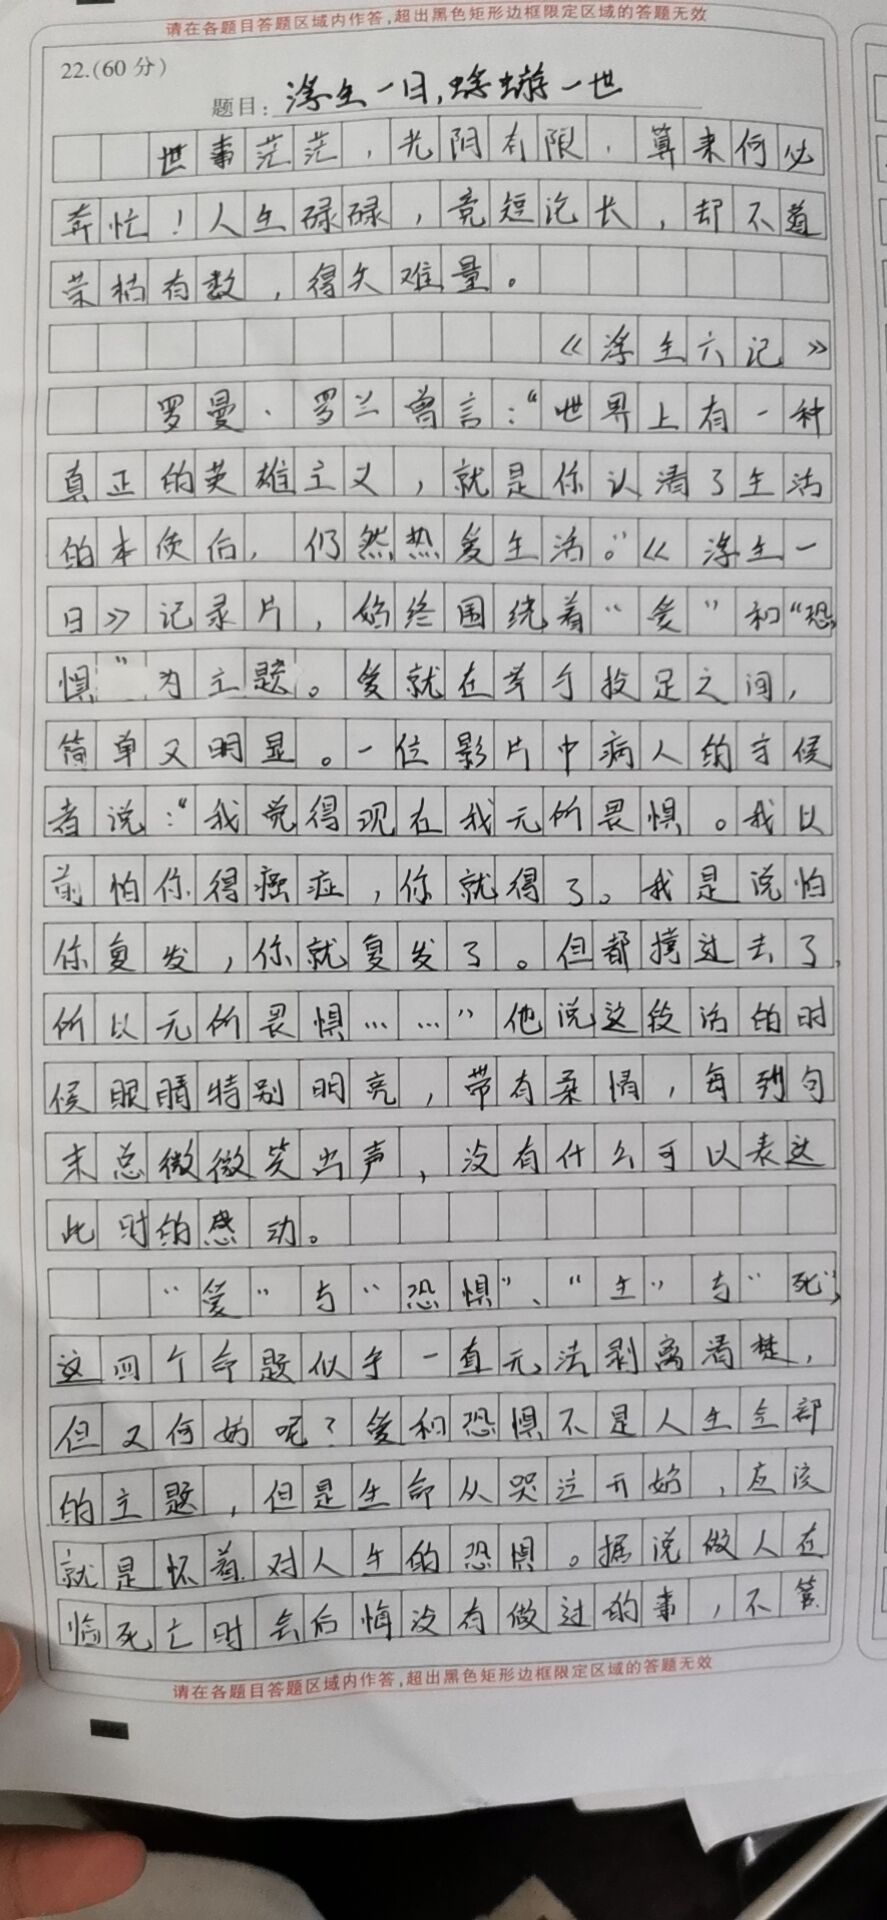 请在各题目答题区域内作答,超出黑色矩形边框限定区域的答题无效
22.(60分)
题目：浮生一日,蜉蝣一世
世事茫茫，光阴有限，算来何必
奔忙！人生碌碌，竞短论长，却不道
荣枯有数，得失难量。
《浮生六记》
罗曼·罗兰曾言：“世界上有一种
真正的英雄主义，就是你认清了生活
的本质后，仍然热爱生活。”《浮生一
日》记录片，始终围绕着“爱”和“恐
惧”为主题。爱就在举手投足之间，
简单又明显。一位影片中病人的守候
者说：“我觉得现在我无所畏惧。我以
前怕你得癌症，你就得了。我是说怕
你复发，你就复发了。但都撑过去了，
所以无所畏惧……”他说这段话的时
候眼睛特别明亮，带有柔情，每到句
末总微微笑出声，没有什么可以表达
此时的感动。
“爱”与“恐惧”、“生”与“死”，
这四个命题似乎一直无法剥离清楚，
但又何妨呢？爱和恐惧不是人生全部
的主题，但是生命从哭泣开始，应该
就是怀着对人生的恐惧。据说做人在
临死亡时会后悔没有做过的事，不管
请在各题目答题区域内作答,超出黑色矩形边框限定区域的答题无效